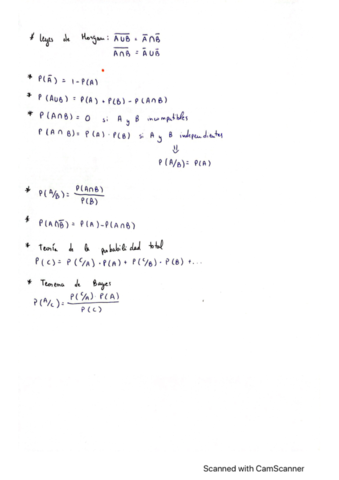 * Leyes de Morgan: A̅U̅B̅ = A̅ ∩ B̅
A̅∩̅B̅ = A̅ U B̅
* P(A̅) = 1 - P(A)
* P(AUB) = P(A) + P(B) - P(A∩B)
* P(A∩B) = 0 si A y B incompatibles
P(A∩B) = P(A) · P(B) si A y B independientes
⇓
P(A/B) = P(A)
* P(A/B) = P(A∩B) / P(B)
* P(A∩B̅) = P(A) - P(A∩B)
* Teoría de la probabilidad total
P(C) = P(C/A) · P(A) + P(C/B) · P(B) + ...
* Teorema de Bayes
P(A/C) = P(C/A) · P(A) / P(C)
Scanned with CamScanner